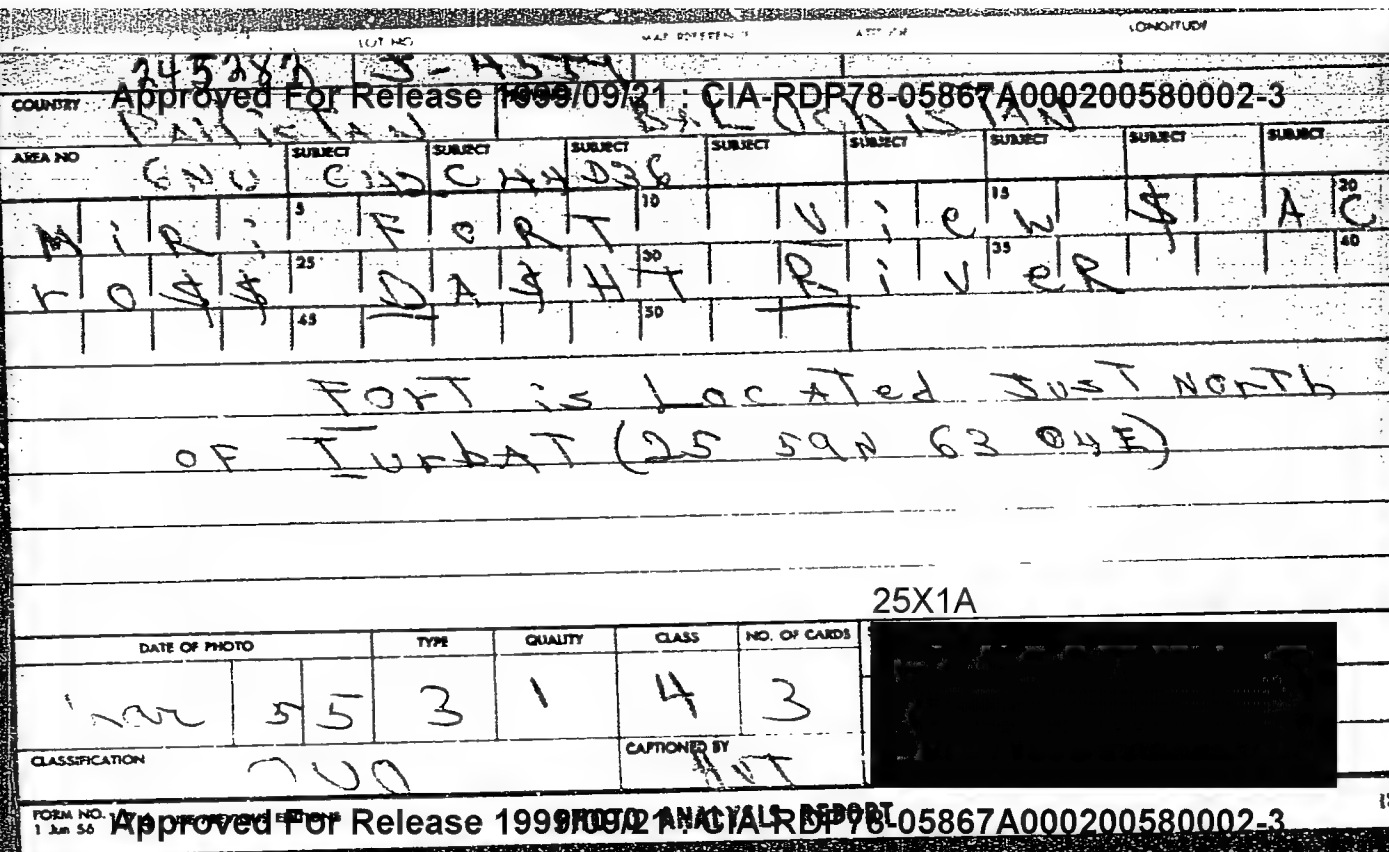 LOT NO. MAP REFERENCE LONGITUDE
245282 J-4554
COUNTRY Approved For Release 1999/09/21 : CIA-RDP78-05867A000200580002-3
PAKISTAN BALUCHISTAN
AREA NO SUBJECT SUBJECT SUBJECT SUBJECT SUBJECT SUBJECT SUBJECT SUBJECT
C44 D36
5 10 15 20
MiRi FORT View $ AC
25 30 35 40
ro$$ DA$HT RiveR
45 50
FOrT is LocATed JusT NorTh
OF TurbAT (25 59N 63 04E)
25X1A
DATE OF PHOTO TYPE QUALITY CLASS NO. OF CARDS
55 3 1 4 3
CLASSIFICATION CAPTIONED BY
FORM NO.
1 Jun 56 Approved For Release 1999/09/21 : CIA-RDP78-05867A000200580002-3
PHOTO ANALYSIS REPORT